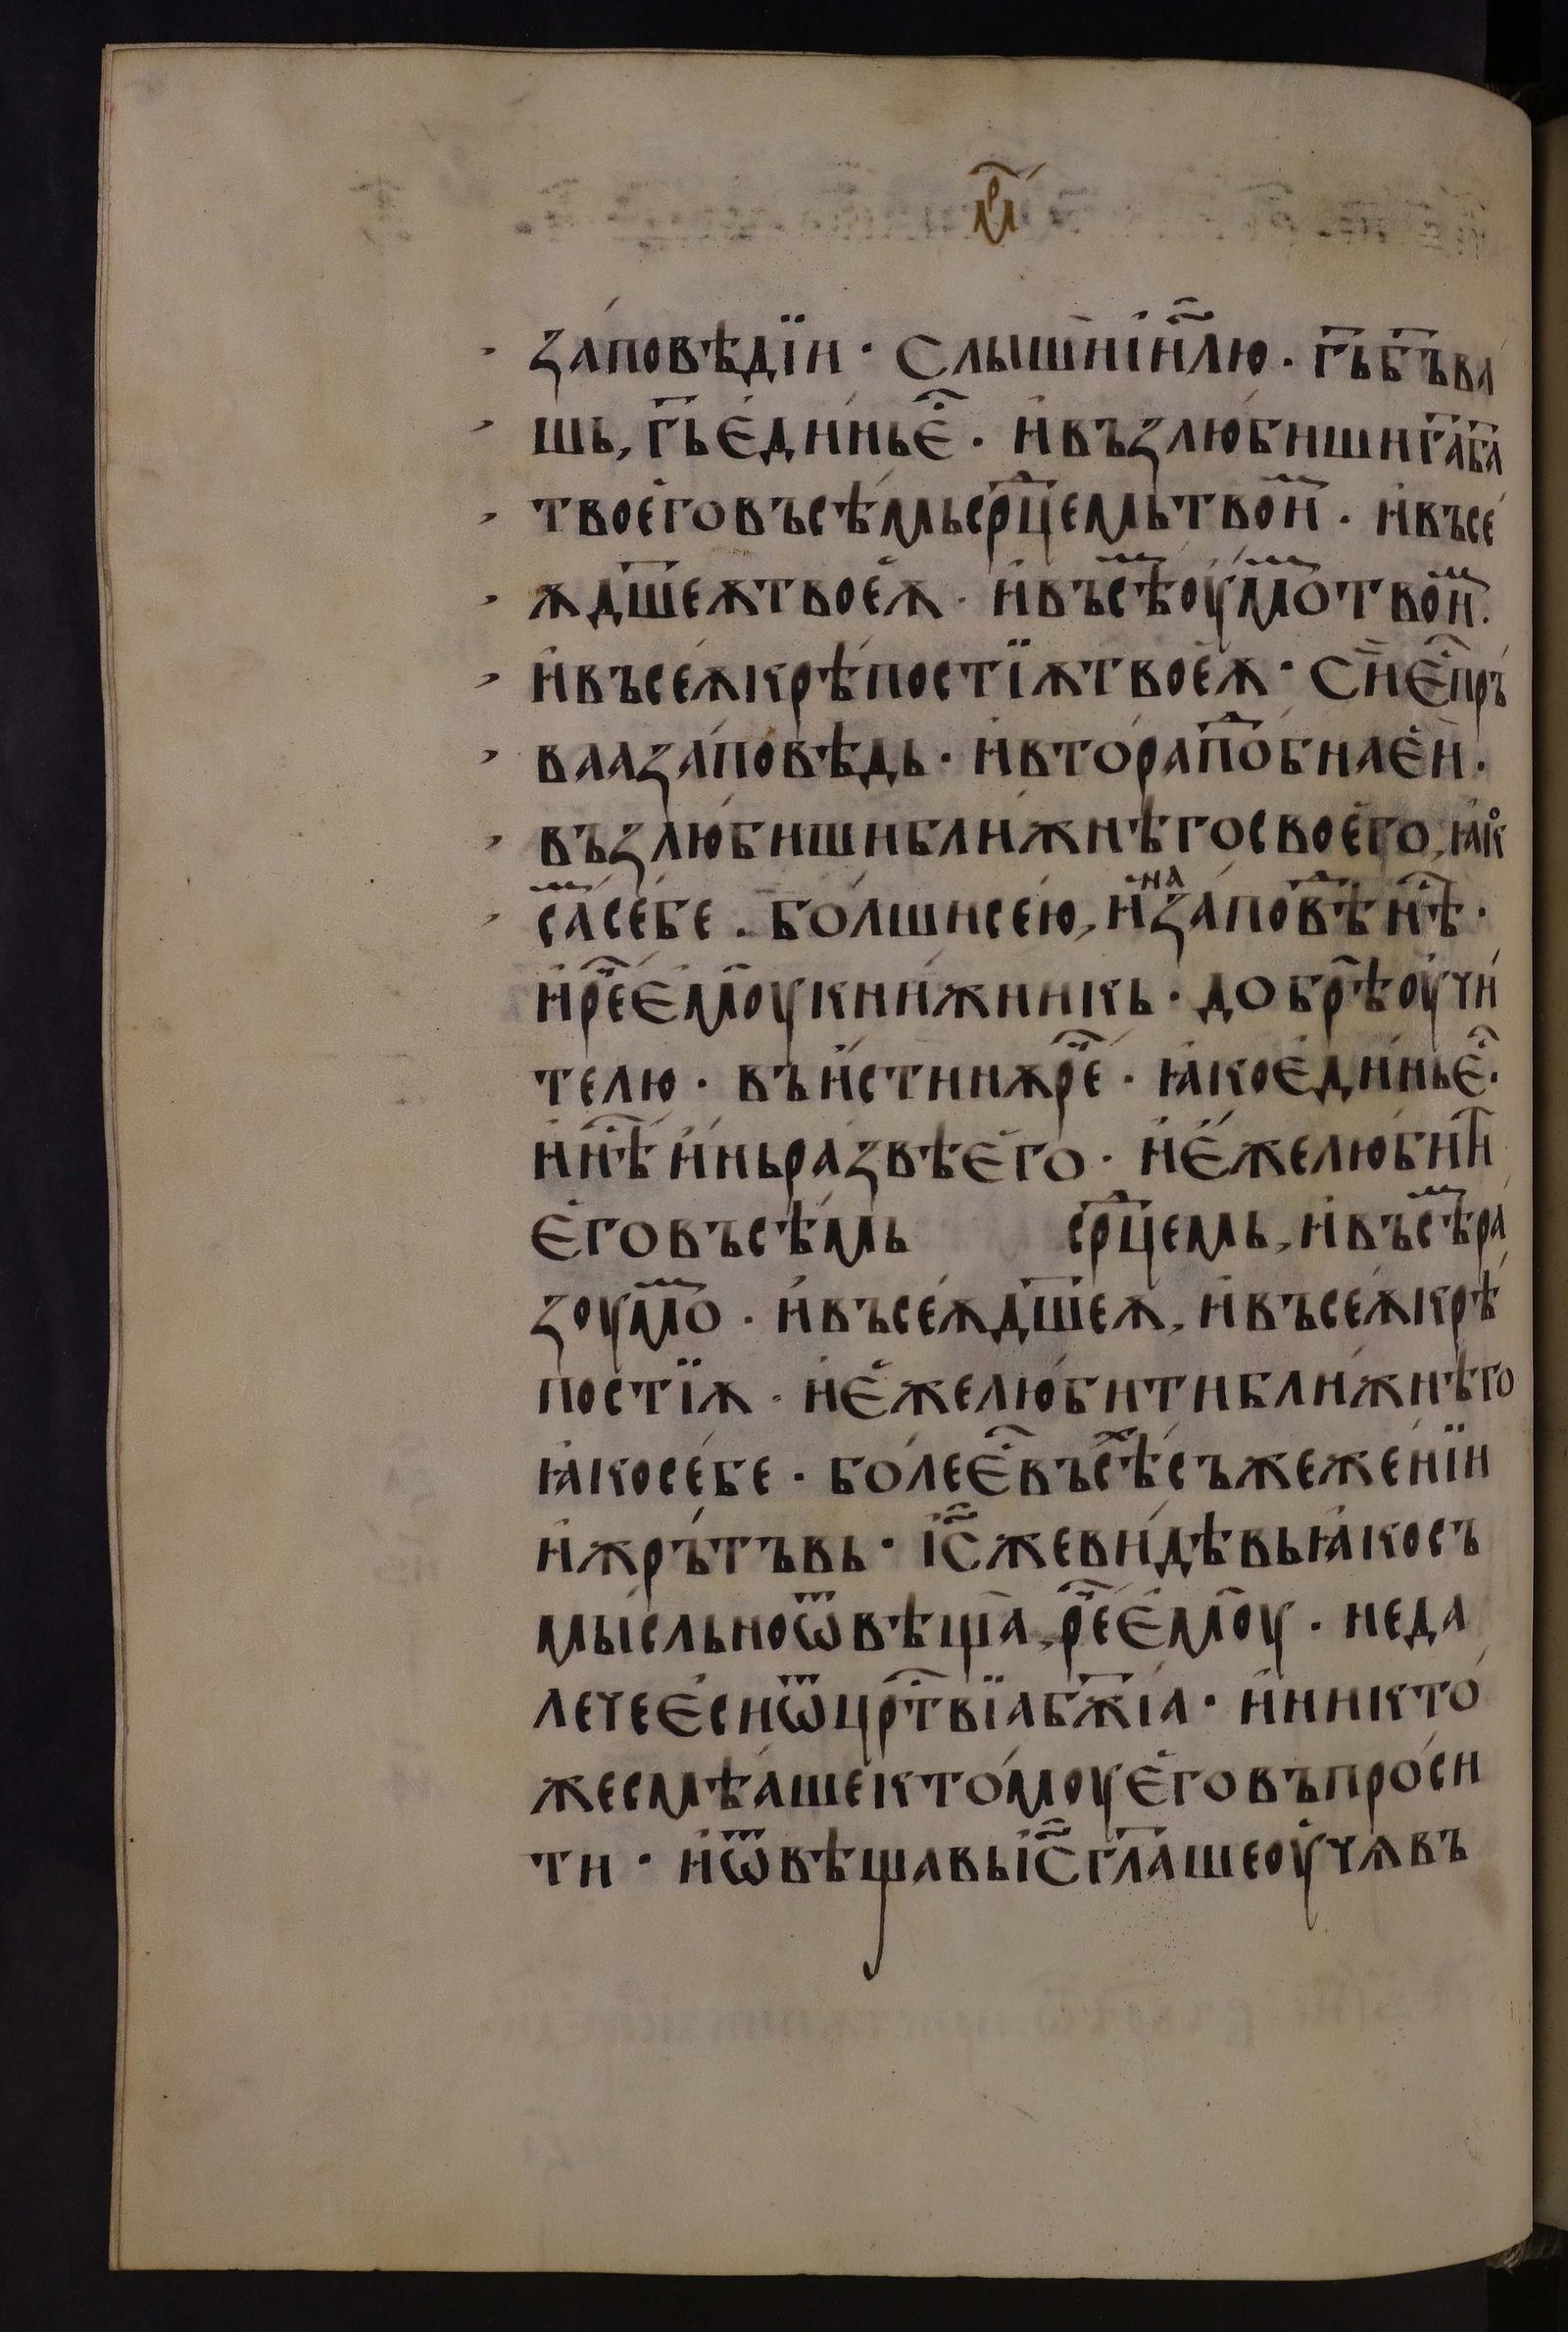 заповѣдїи · Слышиі҆и҃лю · г҃ь б҃ъ ва
шь, г҃ь є҆ди́нь є҆҃ · и҆ възлю́биши г҃а б҃а
твоего̀ въсѣ́мь ср҃цемь твои҆ⷨ · и҆ въсе́
ѫ дш҃еѫ твоеѫ̀ · и҆ въсѣⷨ оу҆мо́ⷨ твои҆ⷨ ·
и҆ въсе́ѫ крѣ́постїѫ твоеѫ̀ · Си є҆҃ пръ́
ваа за́повѣдь · и҆ втора́ поⷣбна є҆и ·
възлю́биши бли́жнѣго своего̀, ꙗ҆кⷪ
саⷨ се́бе · бо́лши сею̀, и҆на за́повѣⷣ нѣⷭ ·
и҆ реⷱ є҆моу кни́жникь · добрѣ оу҆чи́
телю · въ и҆́стинѫ реⷱ · ꙗ҆ко є҆ди́нь є҆҃ ·
и҆ нѣⷭ и҆́нь ра́звѣ є҆го̀ · и҆ є҆́же люби́ т҃и
є҆го̀ въсѣ́мь ср҃цемь, и҆ въсѣⷨ ра́
зоумоⷨ · и҆ въсе́ѫ дш҃еѫ, и҆ въсе́ѫ крѣ́
постїѫ · и҆ є҆́же люби́ти бли́жнѣго
ꙗ҆ко се́бе · бо́лее є҆҃ въсѣⷯ съжеже́нїи
и҆ жръ́твь · і҆с҃ же ви́дѣвь ꙗ҆ко съ
мы́сльно ѿвѣща̀, реⷱ є҆моу · не да
лече є҆си ѿ црⷭ҇твїа бж҃іа · и҆ никто́
же смѣ́аше ктомоу̀ є҆го̀ въпро́си
ти · и҆ ѿвѣщавь і҆с҃ гл҃аше оу҆чѧ въ